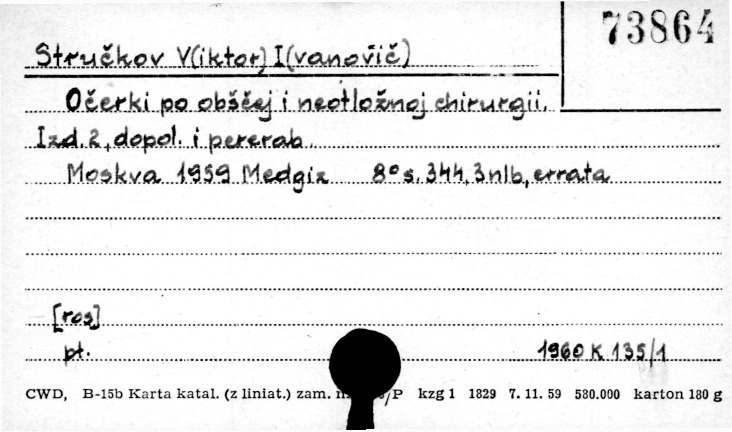 73864
Stručkov V(iktor) I(vanovič)
Očerki po obščej i neotložnoj chirurgii.
Izd. 2, dopol. i pererab.
Moskva 1959 Medgiz 8° s. 344, 3 nlb, errata
[ros]
pt. 1960 K 135/1
CWD, B-15b Karta katal. (z liniat.) zam. /P kzg 1 1829 7. 11. 59 580.000 karton 180 g